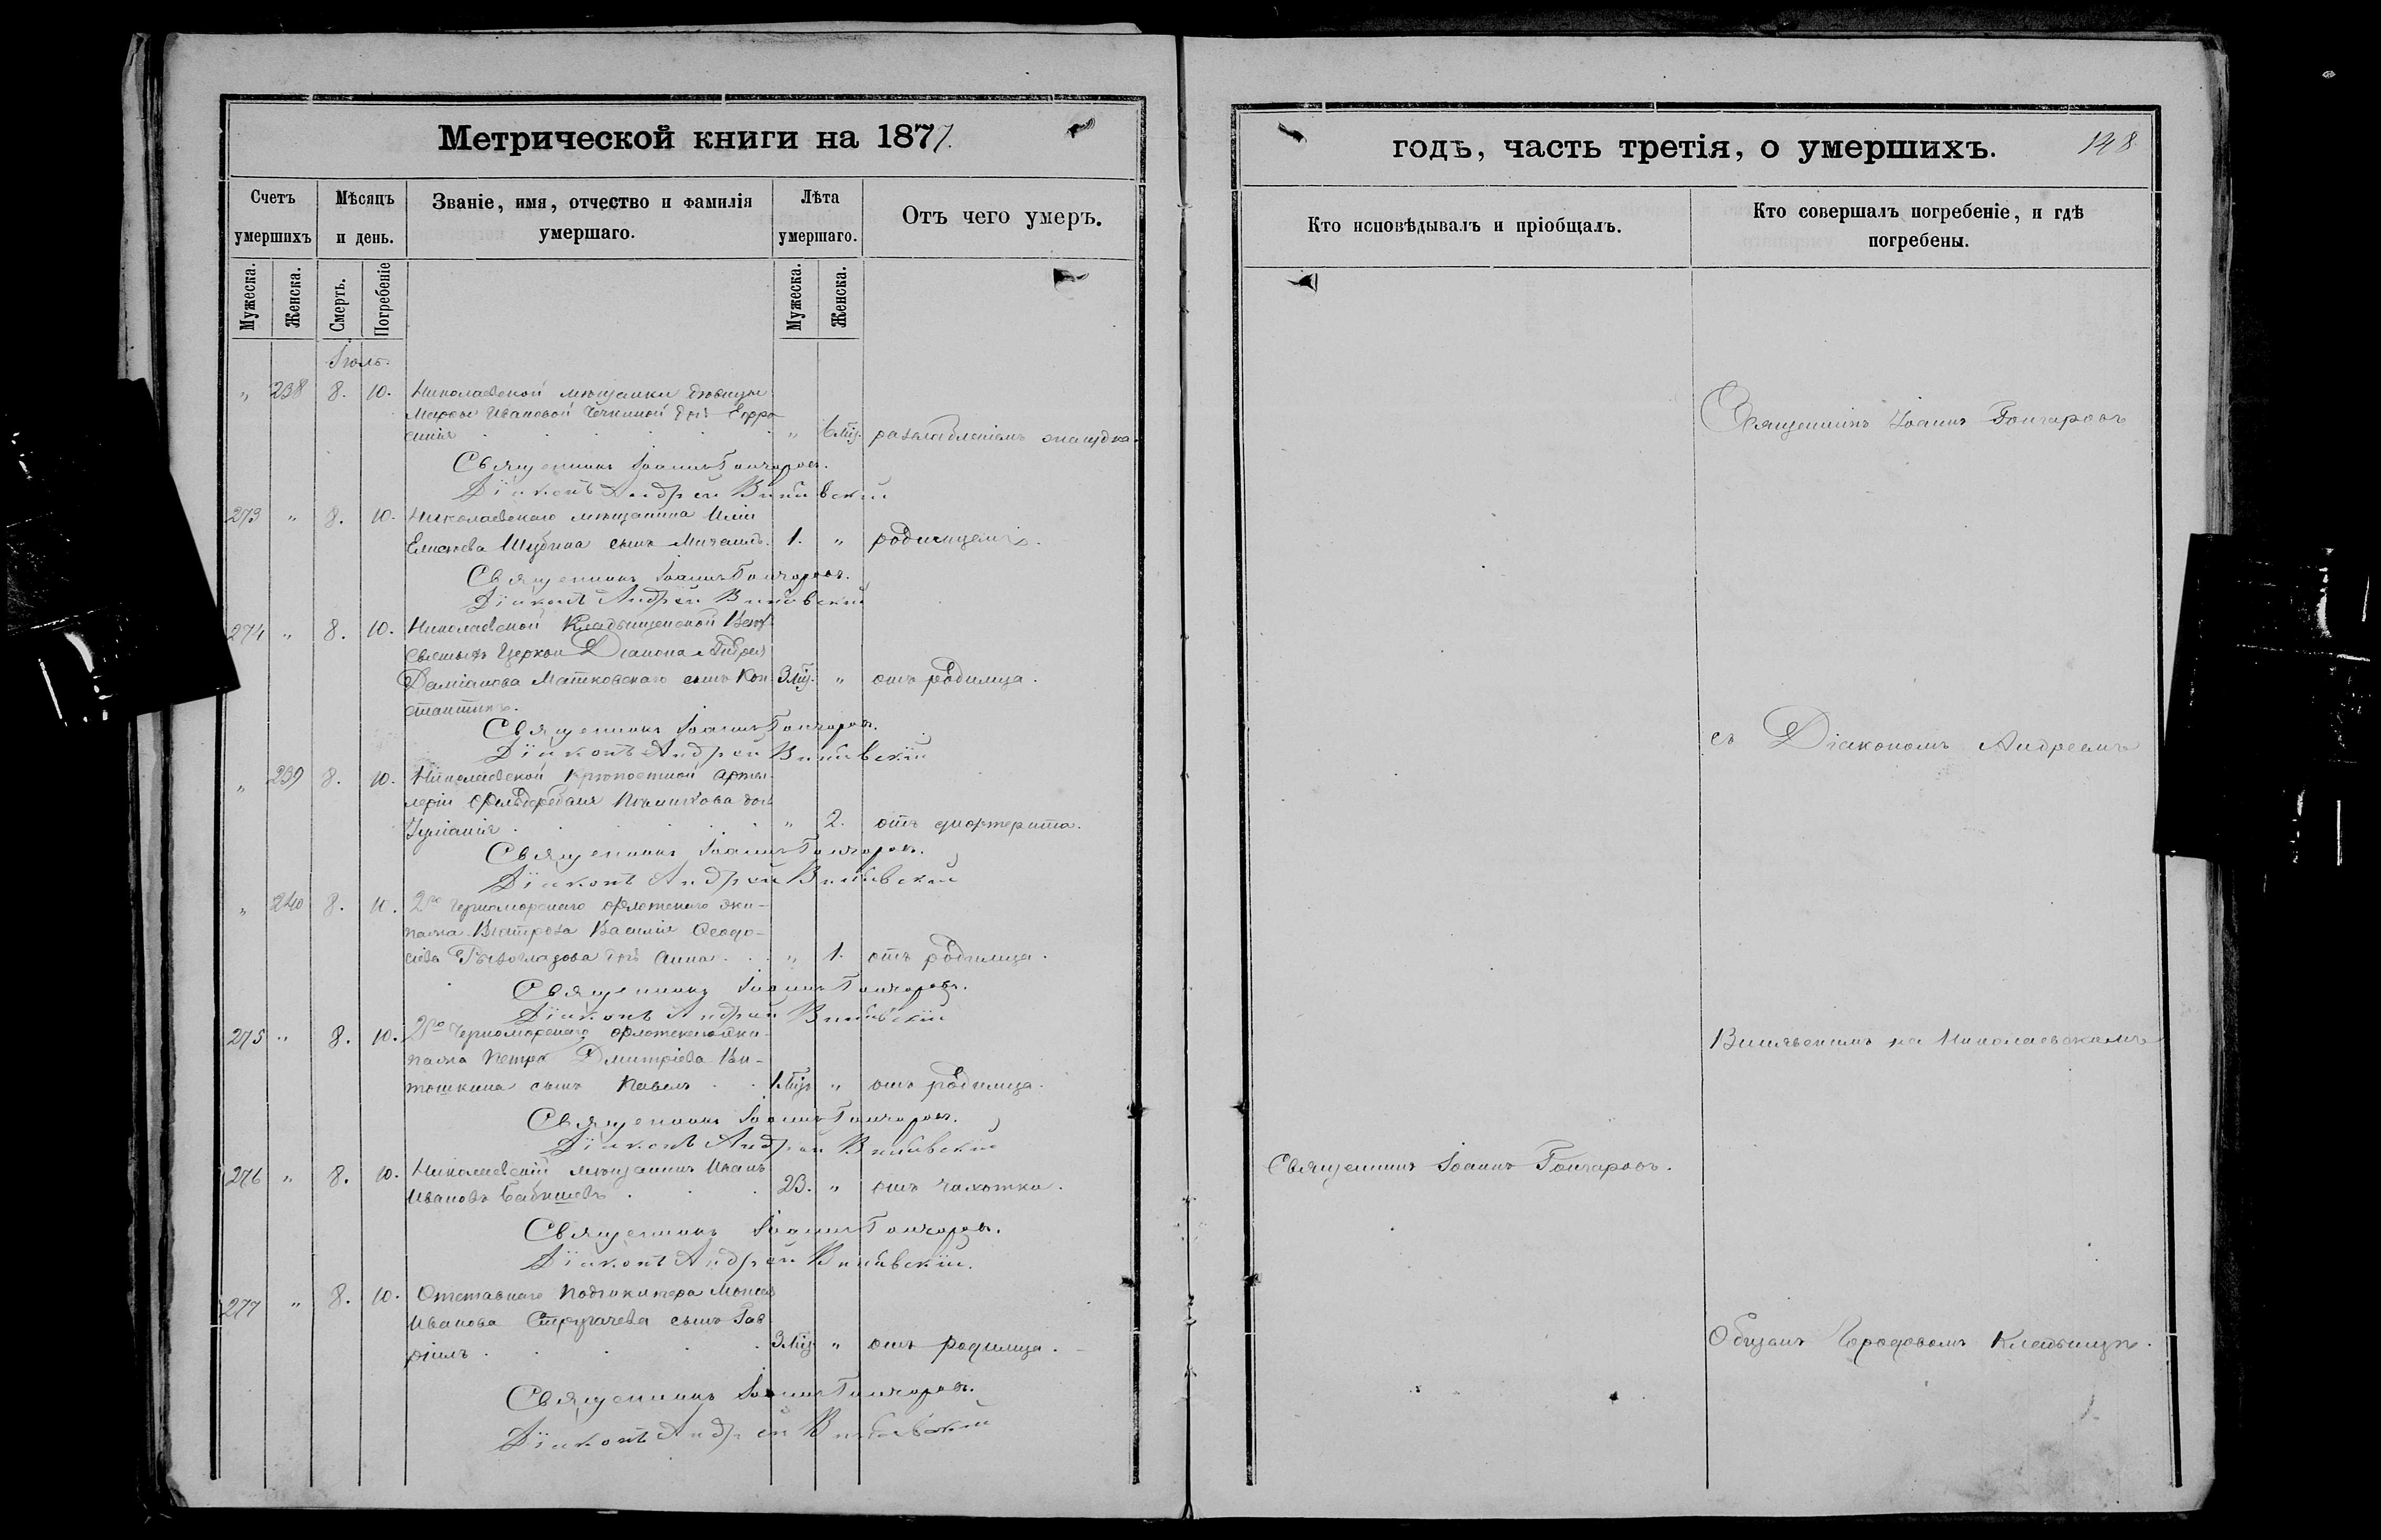 Метрической книги на 1877.
Счетъ умершихъ
Мѣсяцъ и день.
Званіе, имя, отчество и фамилія умершаго.
Лѣта умершаго.
Отъ чего умеръ.
Мужеска.
Женска.
Смерть.
Погребеніе
Мужеска.
Женска.
Іюль.
„ 238 8. 10. Николаевской мѣщанки дѣвицы
Марѳы Ивановой дочь Евфро
синія „ 6 мѣс. разслабленіемъ желудка.
Священникъ Іоаннъ Гончаровъ.
Діаконъ Андрей
273 „ 8. 10. Николаевскаго мѣщанина Иліи
Шубина сынъ Михаилъ. 1. „ родимцемъ.
Священникъ Іоаннъ Гончаровъ.
Діаконъ Андрей
274 „ 8. 10. Николаевской Кладбищенской Всѣх
святыхъ Церкви Діакона Андрея
Даміанова Матковскаго сынъ Кон 3 мѣс. „ отъ родимца.
стантинъ.
Священникъ Іоаннъ Гончаровъ.
Діаконъ Андрей
„ 239 8. 10. Николаевской крѣпостной артил
леріи дочь
Іуліанія „ 2. отъ дифтерита.
Священникъ Іоаннъ Гончаровъ.
Діаконъ Андрей
„ 240 8. 10. 2го Черноморскаго флотскаго эки-
пажа Василія Ѳеодо-
сіева дочь Анна „ 1. отъ родимца.
Священникъ Іоаннъ Гончаровъ.
Діаконъ Андрей
275 „ 8. 10. 2го Черноморскаго флотскаго эки-
пажа Петра Дмитріева
сынъ Павелъ 1 мѣс. „ отъ родимца.
Священникъ Іоаннъ Гончаровъ.
Діаконъ Андрей
276 „ 8. 10. Николаевскій мѣщанинъ Иванъ
Ивановъ 23. „ отъ чахотки.
Священникъ Іоаннъ Гончаровъ.
Діаконъ Андрей
277 „ 8. 10. Отставнаго Моисея
Иванова сынъ Гав
ріилъ 3 мѣс. „ отъ родимца.
Священникъ Іоаннъ Гончаровъ.
Діаконъ Андрей
годъ, часть третія, о умершихъ.
148
Кто исповѣдывалъ и пріобщалъ.
Кто совершалъ погребеніе, и гдѣ погребены.
Священникъ Іоаннъ Гончаровъ
съ Діакономъ Андреемъ
на Николаевскомъ
Священникъ Іоаннъ Гончаровъ.
Общемъ Городовомъ Кладбищѣ.